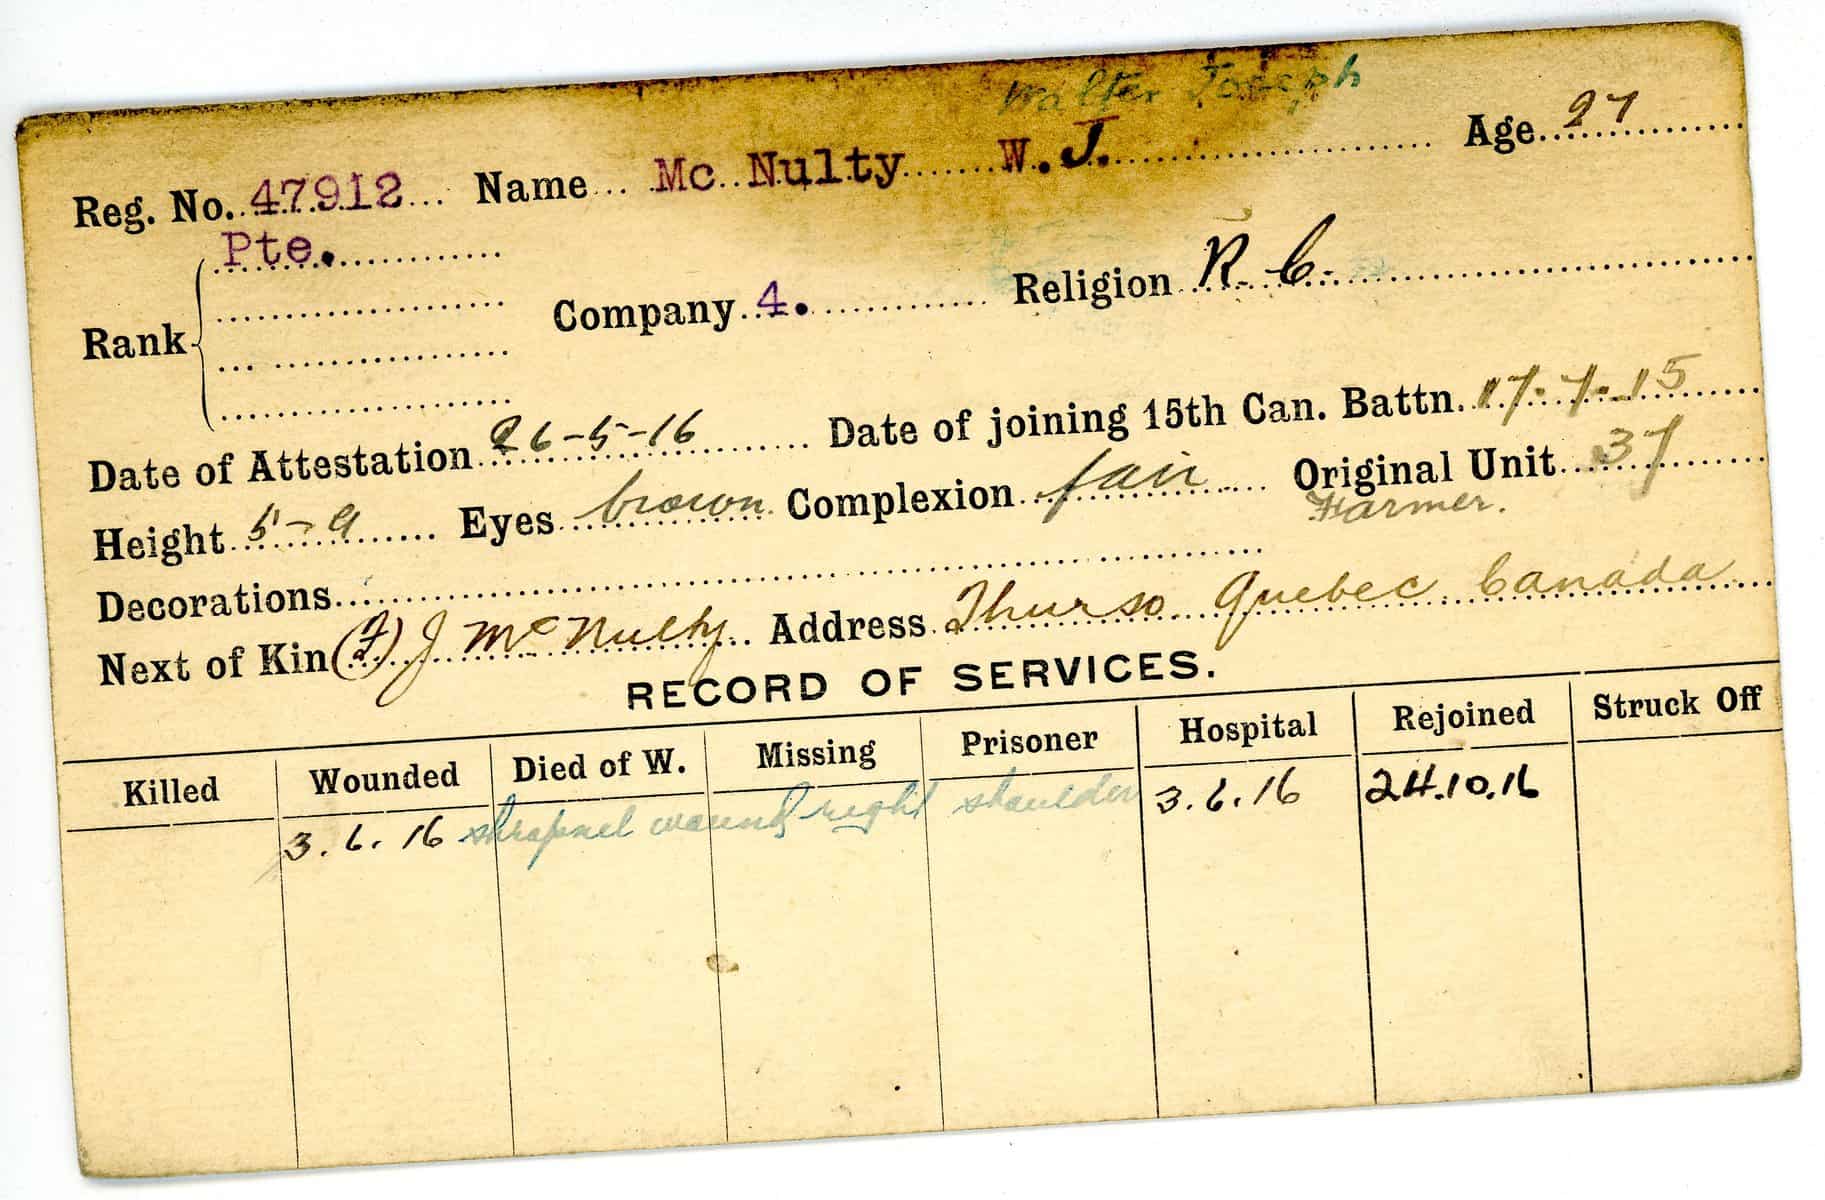 Walter Joseph
Reg. No. 47912 Name Mc Nulty W. J. Age 27
Pte.
Rank Company 4. Religion R. C.
Date of Attestation 26-5-16 Date of joining 15th Can. Battn. 17.7.15
Height 5-9 Eyes brown Complexion fair Original Unit 37
Farmer.
Decorations
Next of Kin (F) J McNulty Address Thurso Quebec Canada
RECORD OF SERVICES.
Killed Wounded Died of W. Missing Prisoner Hospital Rejoined Struck Off
3.6.16 shrapnel wound right shoulder 3.6.16 24.10.16